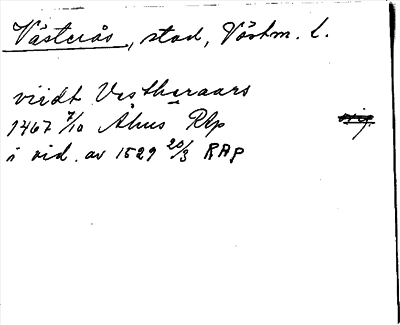 Västerås, stad, Västm. l.
viidt Vestheraars
1467 7/10 Åhus RAp
i vid. av 1529 20/3 RAP